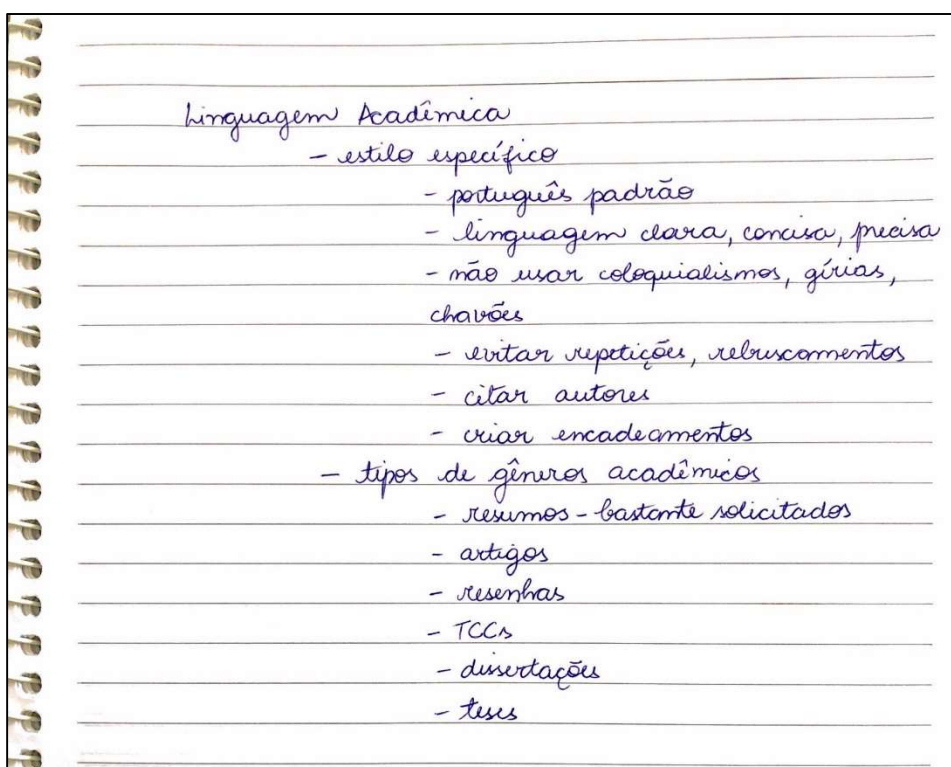 Linguagem Acadêmica
- estilo específico
- português padrão
- linguagem clara, concisa, precisa
- não usar coloquialismos, gírias,
chavões
- evitar repetições, rebuscamentos
- citar autores
- criar encadeamentos
- tipos de gêneros acadêmicos
- resumos - bastante solicitados
- artigos
- resenhas
- TCCs
- dissertações
- teses